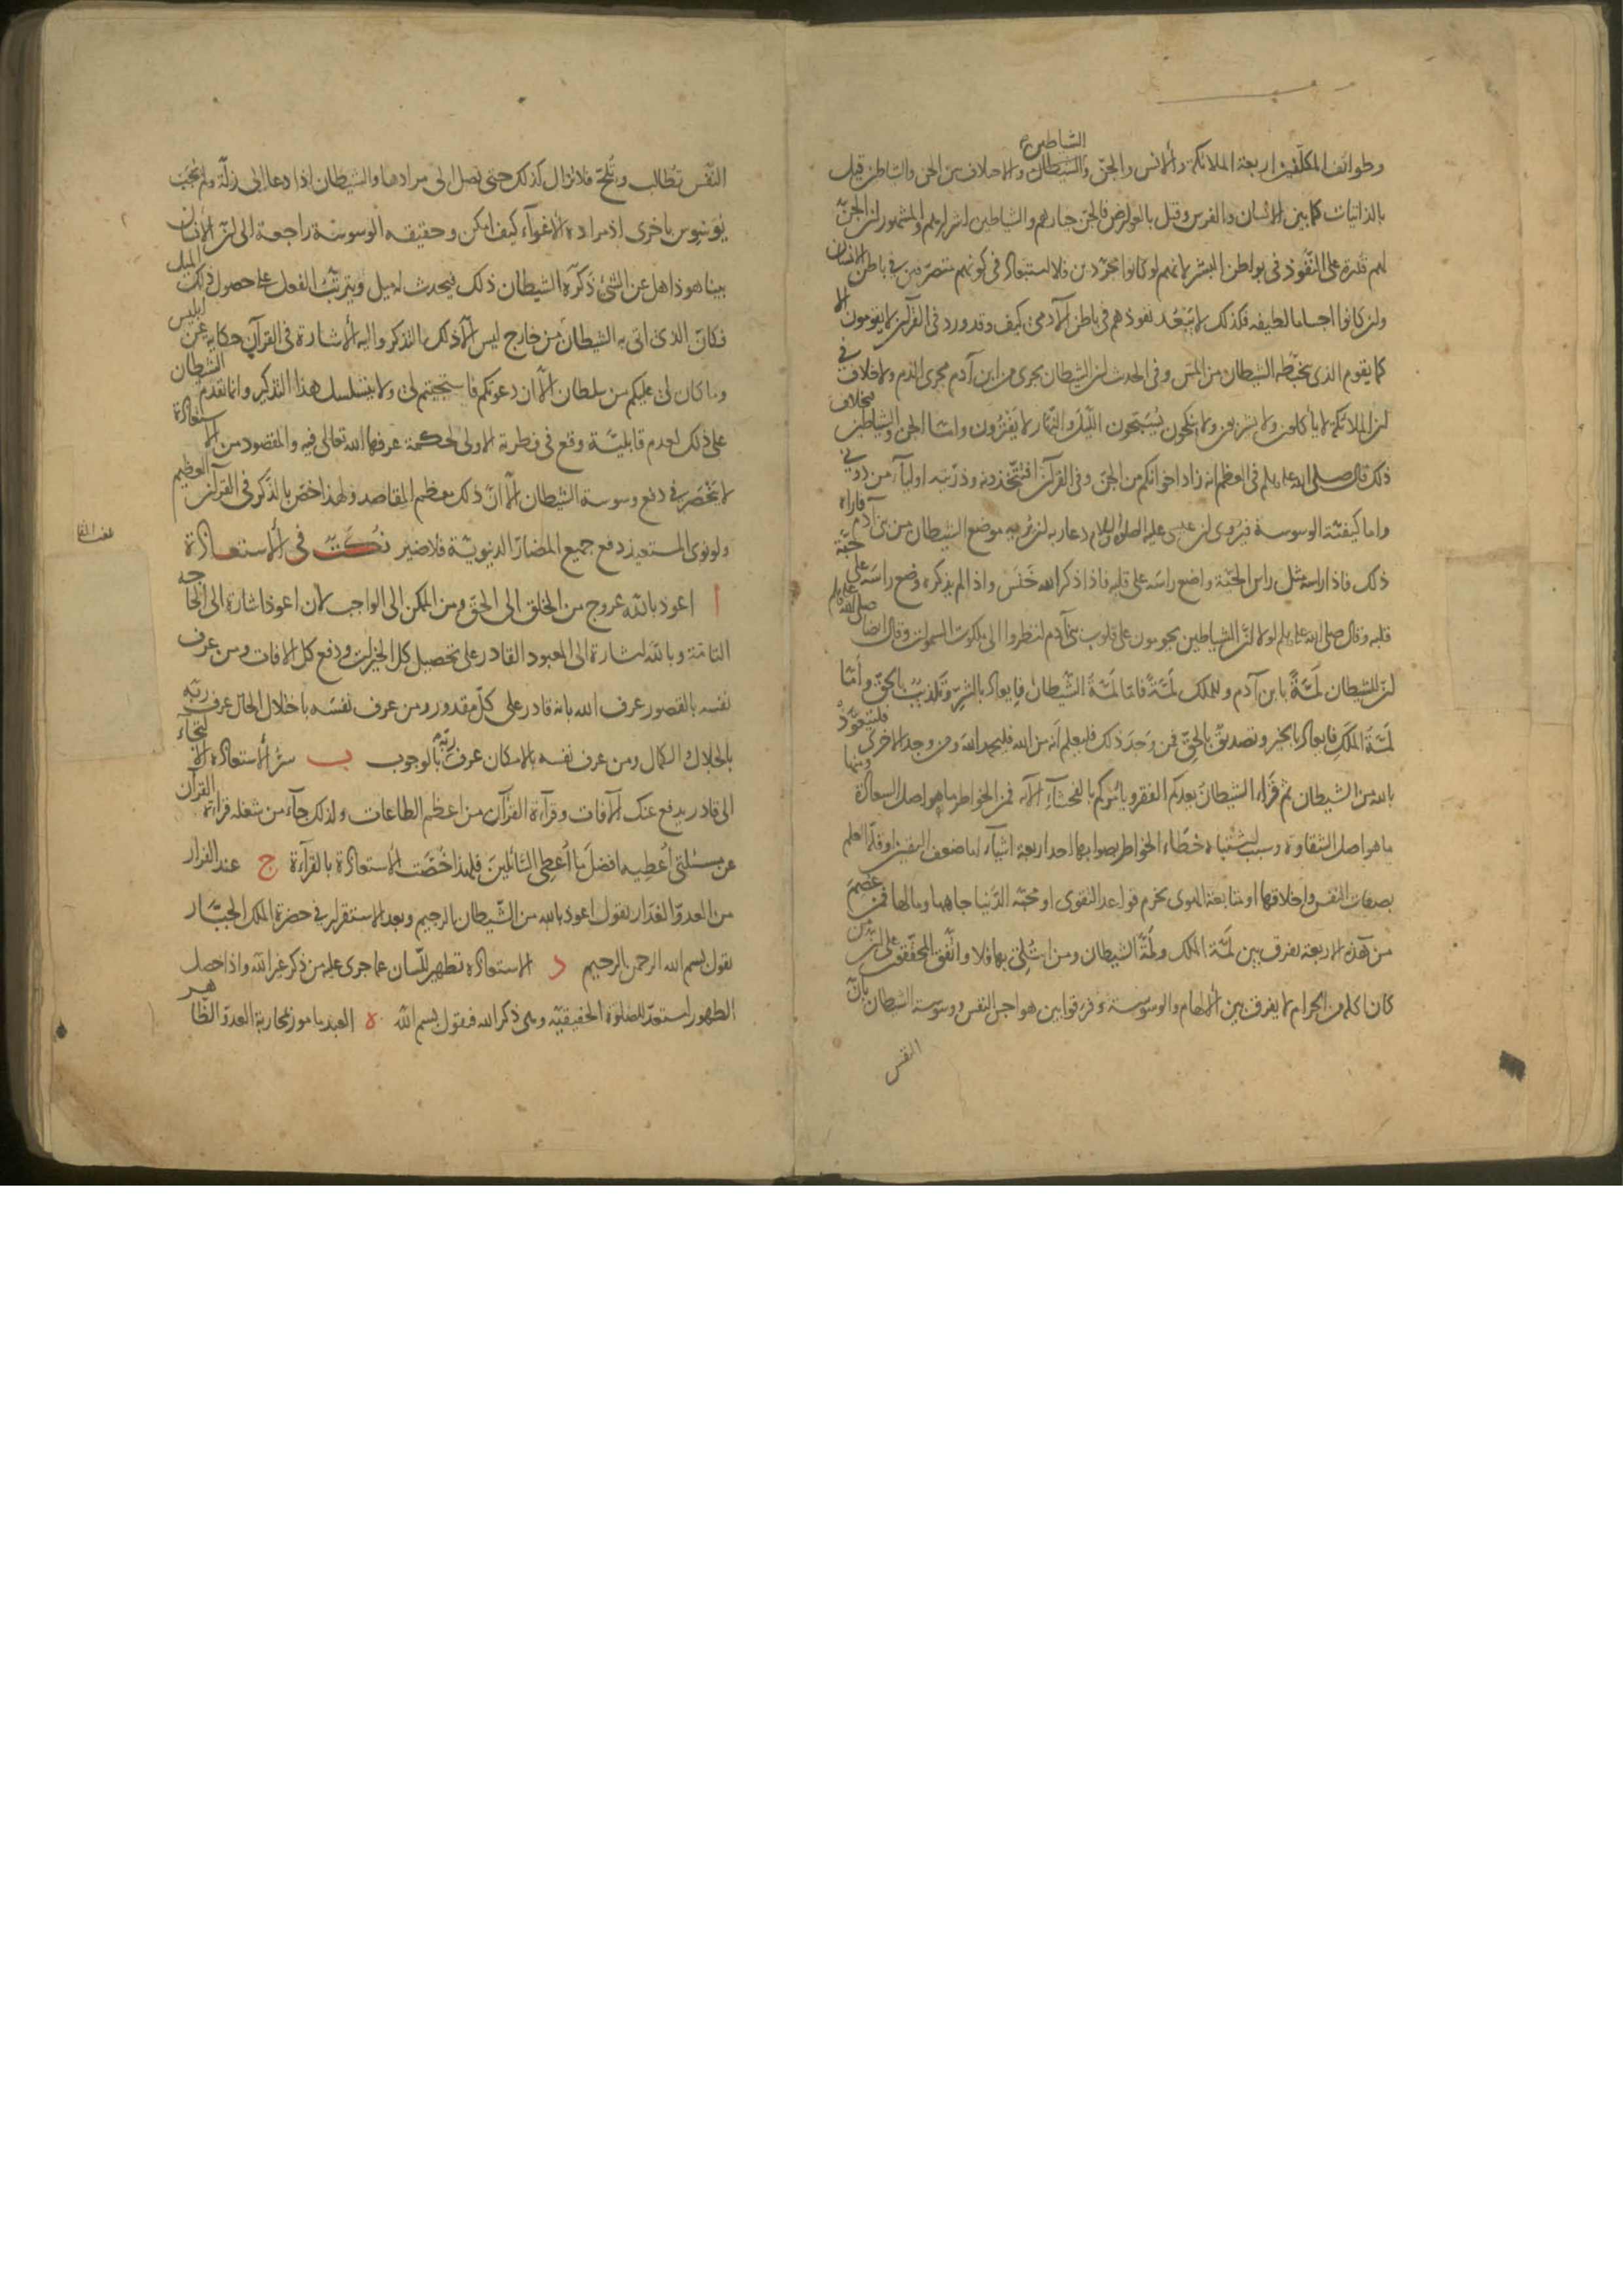 وطوائف المكلّفين اربعة الملائكة والانس والجنّ والشيطان والاختلاف بين الجن والشياطين قيل
الشياطين
بالذاتيات كما بين الانسان والفرس وقيل بالعوارض فالجن خيارهم والشياطين اشرارهم والمشهور ان الجن
لهم قدرة على النّفوذ فى بواطن البشر لانهم لو كانوا مجرّدين فلا استبعاد فى كونهم متصرّفين فى باطن الانسان
وان كانوا اجساما لطيفه فكذلك لا يبعد نفوذهم فى باطن الآدمى كيف وقد ورد فى القرآن لا يقومون الا
كما يقوم الذى يتخبّطه الشيطان من المسّ وفى الحديث ان الشيطان يجرى من ابن آدم مجرى الدم ولا خلاف فى
ان الملائكة لا يأكلون ولا يشربون ولا ينكحون يُسبّحون الليل والنّهار لا يفترون واما الجن والشياطين بخلاف
ذلك قال صلى الله عليه وسلم فى العظم انه زاد اخوانكم من الجنّ وفى القرآن افتتّخذونه وذرّيته اولياء من دونى
واما كيفيّة الوسوسة فيُروى ان عيسى عليه الصلوة والسلام دعا ربه ان يُريه موضع الشيطان من بنى آدم فاراه
ذلك فاذا راسه مثل راس الحيّة واضع راسَه على قلبه فاذا ذكر الله خَنَس واذا لم يذكره وضع راسَه على حبّة
قلبه وقال صلى الله عليه وسلم لولا انّ الشياطين يحومون على قلوب بنى آدم لنظروا الى ملكوت السموات وقال ايضا صلى الله عليه وسلم
انّ للشيطان لَمّةً بابن آدم وللملك لَمّةً فامّا لَمّةُ الشّيطان فايعاد بالشرّ وتكذيبٌ بالحقّ وأمّا
لَمّةُ المَلَك فايعاد بالخير وتصديقٌ بالحقّ فمن وَجَدَ ذلك فليعلم أنه من الله فليحمد الله ومن وجد الاخرى فليتعوّذ
بالله من الشيطان ثم قَرَاء الشيطان يعدكم الفقر ويأمركم بالفحشاء الآية فمن الخواطر ما هو اصل السعادة ومنها
ما هو اصل الشقاوة وسبب اشتباه خطاء الخواطر بصوابها احد اربعة اشياء اما ضعف اليقين او قلّة العلم
بصفات النفس واخلاقها او متابعة الهوى بخرم قواعد التقوى او محبّة الدّنيا جاهها ومالها فمن عُصِمَ
من هذه الاربعة يفرق بين لَمّة الملك ولَمّة الشيطان ومن ابتُلى بها فلا واتّفق المحقّقون على ان من
كان اكله من الحرام لا يفرق بين الالهام والوسوسة وفرقوا بين هواجس النفس ووسوسة الشيطان بانّ
النفس
النّفس تطالب وتُلحّ فلا تزال كذلك حتى تصل الى مرادها والشيطان اذا دعا الى زلّة ولم يُجَب
يُوَسْوِس باخرى اذ مراده الاغواء كيف امكن وحقيقه الوسوسة راجعة الى ان الانسان
بينا هو ذاهل عن الشئ ذكّره الشيطان ذلك فيحدث له ميل ويترتّب الفعل على حصول ذلك الميل
فكانّ الذى اتى به الشيطان من خارج ليس الّا ذلك التذكر واليه الاشارة فى القرآن حكايه عن ابليس
وما كان لى عليكم من سلطان الّا ان دعوتكم فاستجبتم لى ولا يتسلسل هذا التذكير وانما تقدم الشيطان
على ذلك لعدم قابليّة وقع فى فطرته الاولى لحكمة عرفها الله تعالى فيه والمقصود من الاستعاذة
لا ينحصر فى دفع وسوسة الشيطان الّا انّ ذلك معظم المقاصد ولهذا خصّ بالذكر فى القرآن العظيم
ولو نوى المستعيذ دفع جميع المضارّ الدنيويّة فلا ضير نكت فى الاستعاذة
ا اعوذ بالله عروج من الخلق الى الحقّ ومن الممكن الى الواجب لان اعوذ اشارة الى الحاجة
التامّة وبالله اشارة الى المعبود القادر على تحصيل كل الخيرات ودفع كل الافات ومن عرف
نفسه بالقصور عرف الله بانه قادر على كلّ مقدور ومن عرف نفسَه باختلال الحال عرف ربّه
بالجلال والكمال ومن عرف نفسه بالامكان عرف ربّه بالوجوب ب سرّ الاستعاذة الالتجاء
الى قادر يدفع عنك الآفات وقرآءة القرآن من اعظم الطاعات ولذلك جاء من شغله قراءة القرآن
عن مسئلتى أُعطِيه افضلَ ما أُعطى السّائلينَ فلهذا خُصّت الاستعاذة بالقراءة ج عند الفرار
من العدوّ الغدّار تقول اعوذ بالله من الشّيطان الرجيم وبعد الاستقرار فى حضرة الملك الجبّار
تقول بسم الله الرحمن الرحيم د الاستعاذه تطهير للسان عما جرى عليه من ذكر غير الله واذا حصل
الطهور استعدّ للصلوة الحقيقيّه وهى ذكر الله فيقول بسم الله ه العبد مامور بمحاربة العدوّ الظاهر